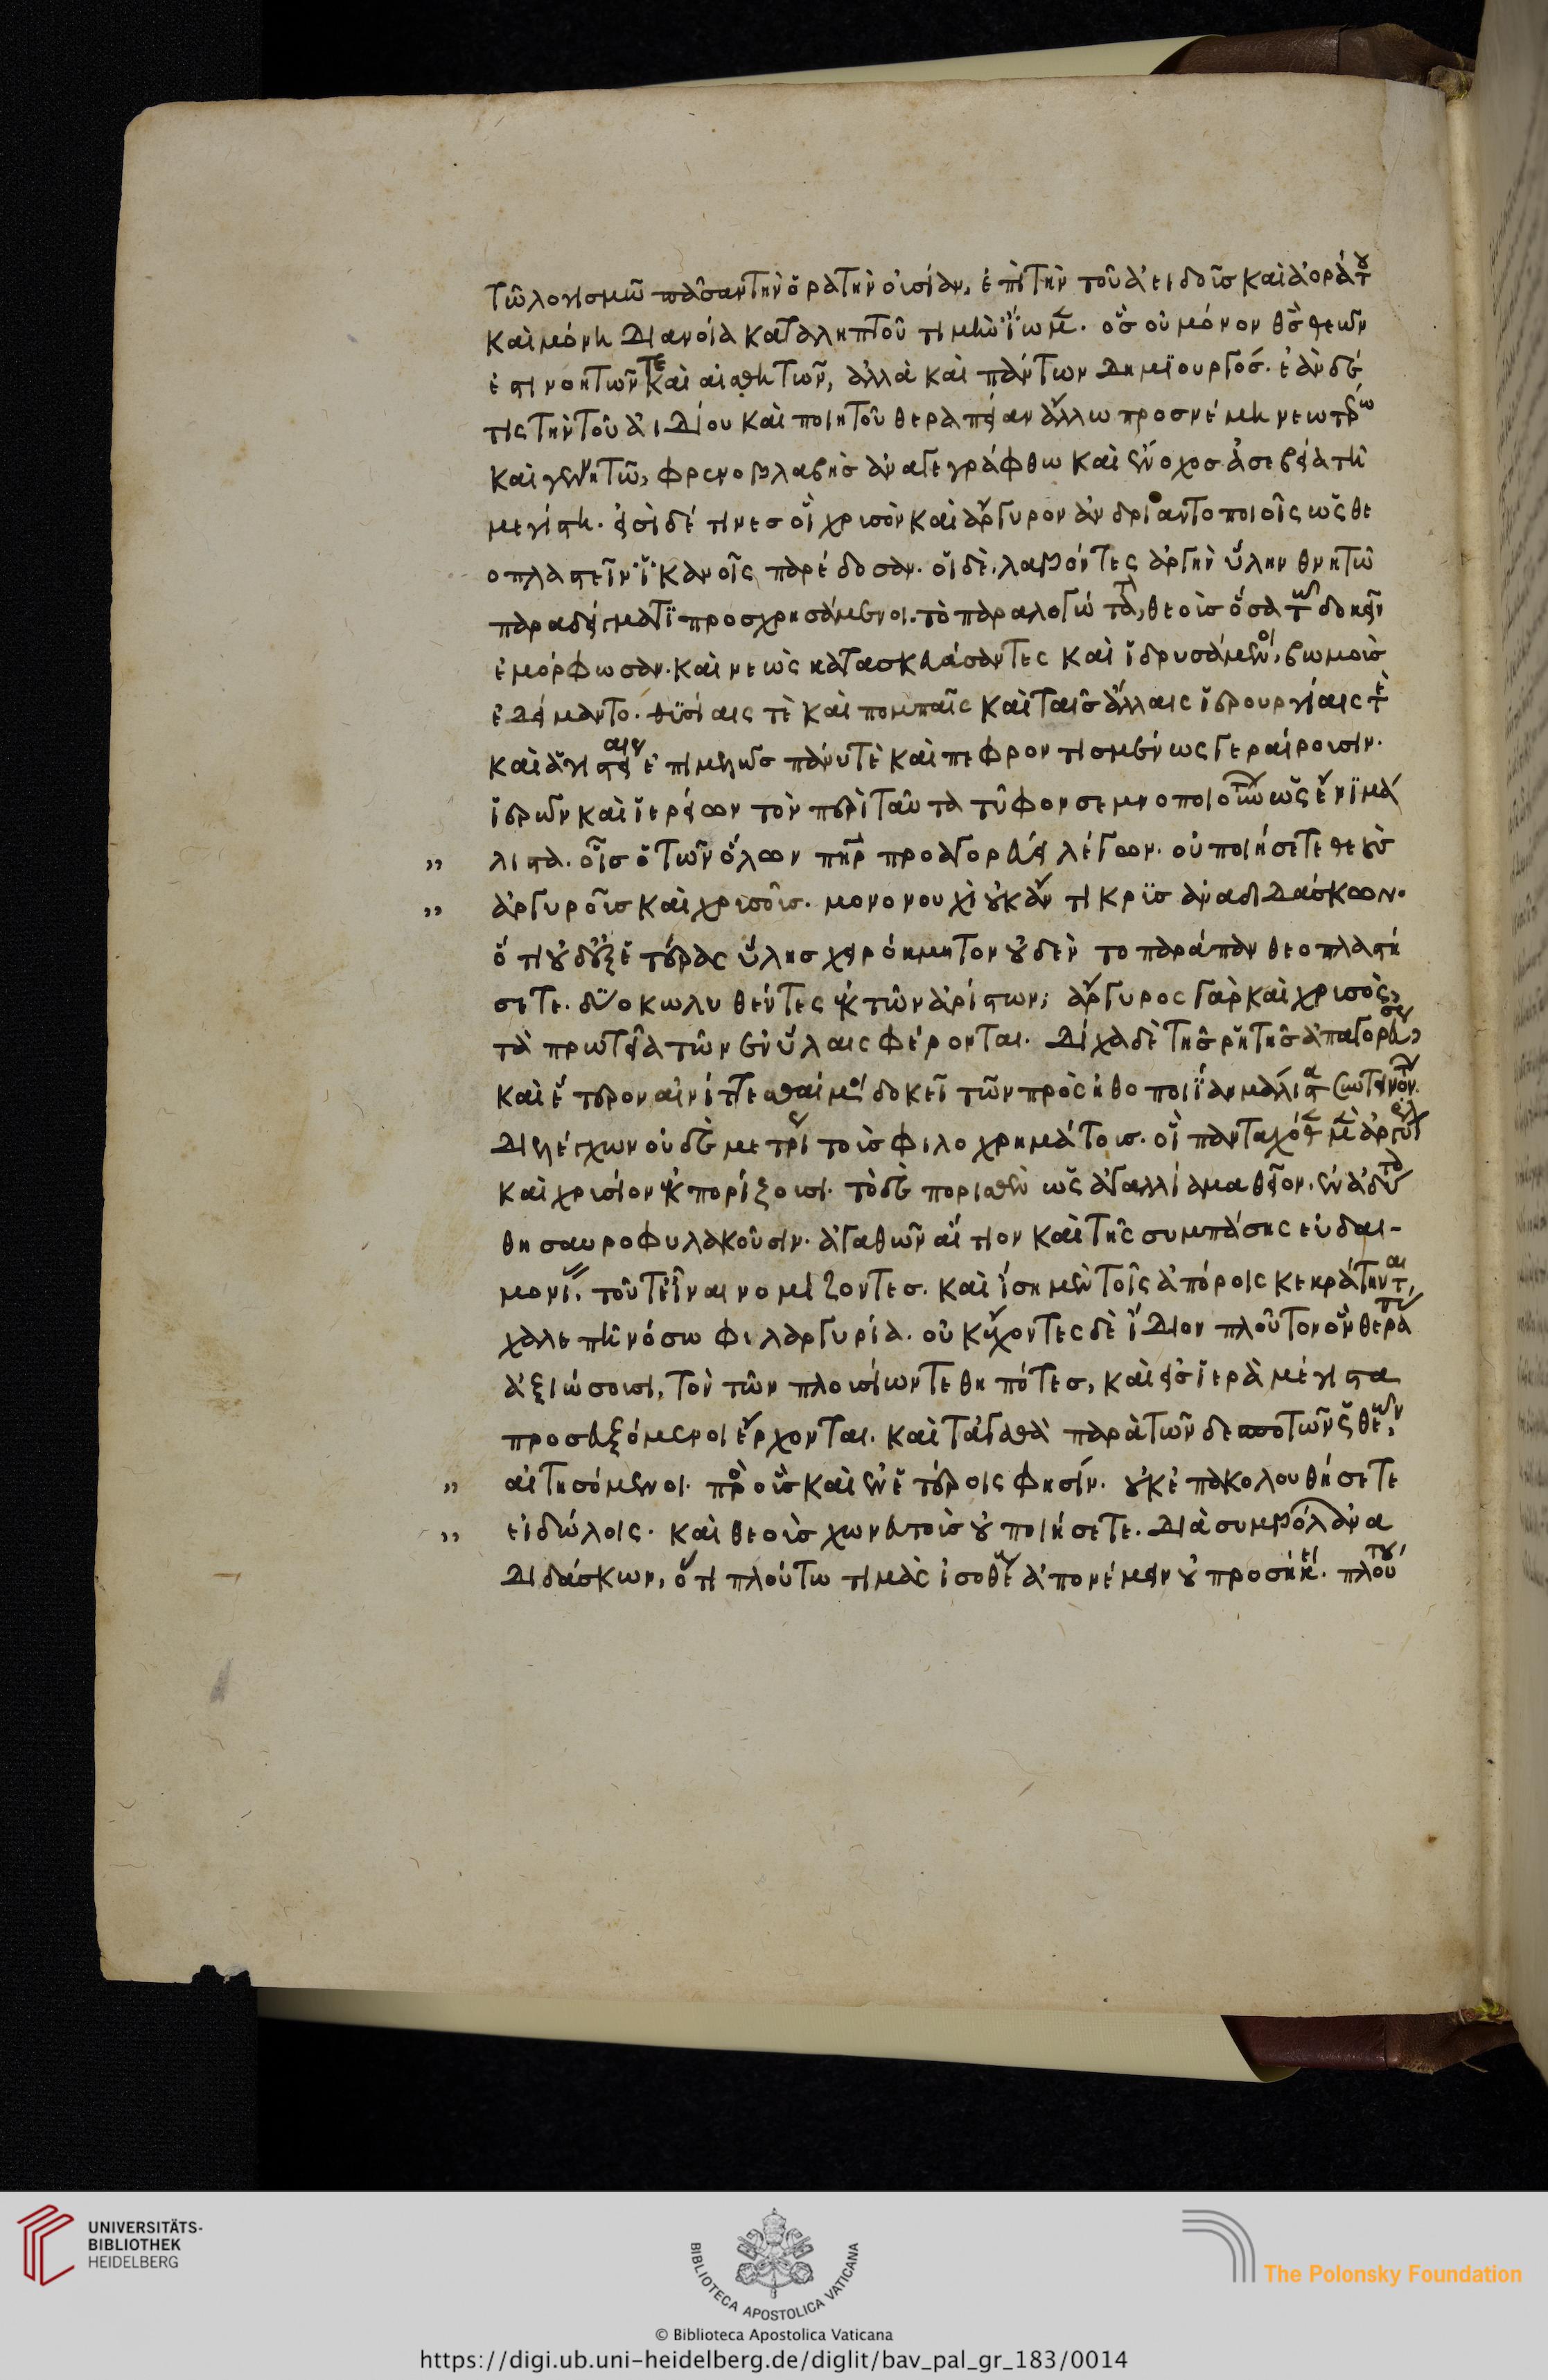 τῶ λογισμῶ πᾶσαν τὴν ὁρατὴν οὐσίαν, ἐπὶ τὴν τοῦ ἀειδοῦς καὶ ἀοράτου
καὶ μόνη διανοία καταληπτοῦ τιμὴν ἴωμεν. ὃς οὐ μόνον θς θεῶν
ἐστι νοητῶν τε καὶ αἰσθητῶν, ἀλλὰ καὶ πάντων δημϊουργός. ἐὰν δέ
τις τὴν τοῦ ἀιδίου καὶ ποιητοῦ θεραπείαν ἄλλω προσνέμη νεωτέρω
καὶ γεννητῶ, φρενοβλαβὴς ἀναγεγράφθω καὶ ἔνοχος ἀσεβεία τῆ
μεγίστη. εἰσὶ δέ τινες οἳ χρυσὸν καὶ ἄργυρον ἀνδριαντοποιοῖς ὡς θε
οπλαστεῖν ἱκανοῖς παρέδοσαν. οἱ δὲ, λαβόντες ἀργὴν ὕλην θνητῶ
παραδείγματϊ προσχρησάμενοι. τὸ παραλογώτατον, θεοὺς ὅσα τῶ δοκεῖν
ἐμόρφωσαν. καὶ νεὼς κατασκευάσαντες καὶ ἱδρυσάμενοι, βωμοὺς
ἐδείμαντο. θϋσίαις τὲ καὶ πομπαῖς καὶ ταῖς ἄλλαις ἱερουργίαις τὲ
καὶ ἁγιστείαις ἐπιμελῶς πάνυ τὲ καὶ πεφροντισμένως γεραίρουσιν.
ἱερῶν καὶ ἱερείων τὸν περὶ ταῦτα τῦφον σεμνοποιούντων ὡς ἔνϊ μά
λιστα. οἷς ὁ τῶν ὅλων πηρ προαγορεύει λέγων. οὐ ποιήσετε θεοὺς
ἀργυροῦς καὶ χρυσοῦς. μονονουχὶ οὐκ ἄντικρϋς ἀναδιδάσκων.
ὅτι οὐδ' ἐξ ἑτέρας ὕλης χειρόκμητον οὐδὲν το παράπαν θεοπλαστή
σετε. δύο κωλυθέντες ἐκ τῶν ἀρίστων; ἄργυρος γὰρ καὶ χρυσὸς,
τὰ πρωτεῖα τῶν ἐν ὕλαις φέρονται. δίχα δὲ τῆς ρητῆς ἀπαγορεύσεως,
καὶ ἕτερον αἰνίττεσθαί μοι δοκεῖ τῶν πρὸς ἠθοποιΐαν μάλιστα συντεινόντων.
διελέγχων οὐδὲ μετρίως τοὺς φιλοχρημάτους. οἳ πανταχόθεν μὲν ἀργύριον
καὶ χρυσίον ἐκπορίζουσι. τὸ δὲ πορισθὲν ὡς ἀγαλλίαμα θεῖον. ἐν ἀδύτοις
θησαυροφυλακοῦσιν. ἀγαθῶν αἴτιον καὶ τῆς συμπάσης εὐδαι-
μονίας. τοῦτ' εἶναι νομίζοντες. καὶ ὅσοι μὲν τοῖς ἀπόροις κεκράτηνται,
χαλεπῆ νόσω φιλαργυρία. οὐκ ἔχοντες δὲ ἴδιον πλοῦτον ὃν θεραπείας
ἀξιώσουσι, τὸν τῶν πλουσίων τεθηπότες, καὶ εἰς ἱερὰ μέγιστα
προσευξόμενοι ἔρχονται. καὶ τἀγαθὰ παρὰ τῶν δεσποτῶν ὡς θεῶν,
αἰτησόμενοι. πρὸς οὓς καὶ ἐν ἑτέροις φησίν. οὐκ ἐπακολουθήσετε
εἰδώλοις. καὶ θεοὺς χωνευτοὺς οὐ ποιήσετε. διὰ συμβόλων ἀνα
διδάσκων, ὅτι πλούτω τιμὰς ἰσοθέους ἀπονέμειν οὐ προσήκει. πλούτου
UNIVERSITÄTS-
BIBLIOTHEK
HEIDELBERG
BIBLIOTECA APOSTOLICA VATICANA
The Polonsky Foundation
© Biblioteca Apostolica Vaticana
https://digi.ub.uni-heidelberg.de/diglit/bav_pal_gr_183/0014